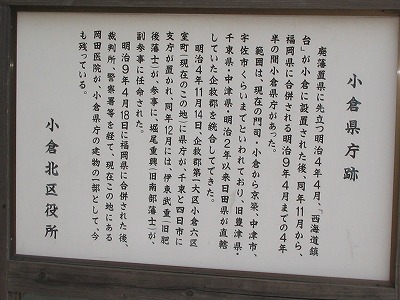 小倉県庁跡
廃藩置県に先立つ明治4年4月、「西海道鎮
台」が小倉に設置された後、同年11月から、
福岡県に合併される明治9年4月までの4年
半の間小倉県庁があった。
範囲は、現在の門司・小倉から京築、中津市、
宇佐市くらいまでといわれており、旧豊津県・
千束県・中津県・明治2年以来日田県が直轄
していた企救郡を統合してできた。
明治4年11月14日、企救郡第一大区小倉六区
室町(現在のこの地)に県庁が、千束と四日市に
支庁が置かれ、同年12月には、伊東武重(旧肥
後藩士)が、参事に、堀尾重興(旧南部藩士)が、
副参事に任命された。
明治9年4月18日に福岡県に合併された後、
裁判所、警察署等を経て、現在この地にある
岡田医院が、小倉県庁の建物の一部として、今
も残っている。
小倉北区役所